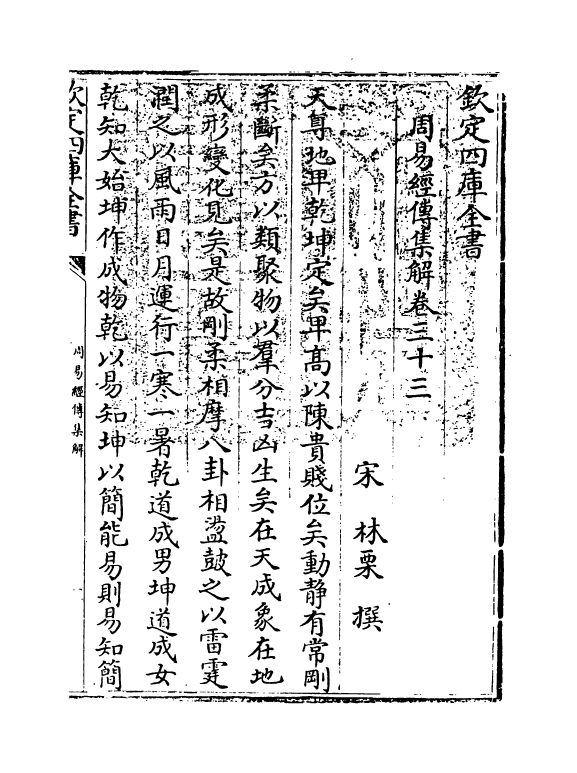 欽定四庫全書
周易經傳集解卷三十三
宋 林栗 撰
天尊地卑乾坤定矣卑髙以陳貴賤位矣動静有常剛
柔斷矣方以類聚物以羣分吉凶生矣在天成象在地
成形變化見矣是故剛柔相摩八卦相盪鼓之以雷霆
潤之以風雨日月運行一寒一暑乾道成男坤道成女
乾知大始坤作成物乾以易知坤以簡能易則易知簡
欽定四庫全書
周易經傳集解